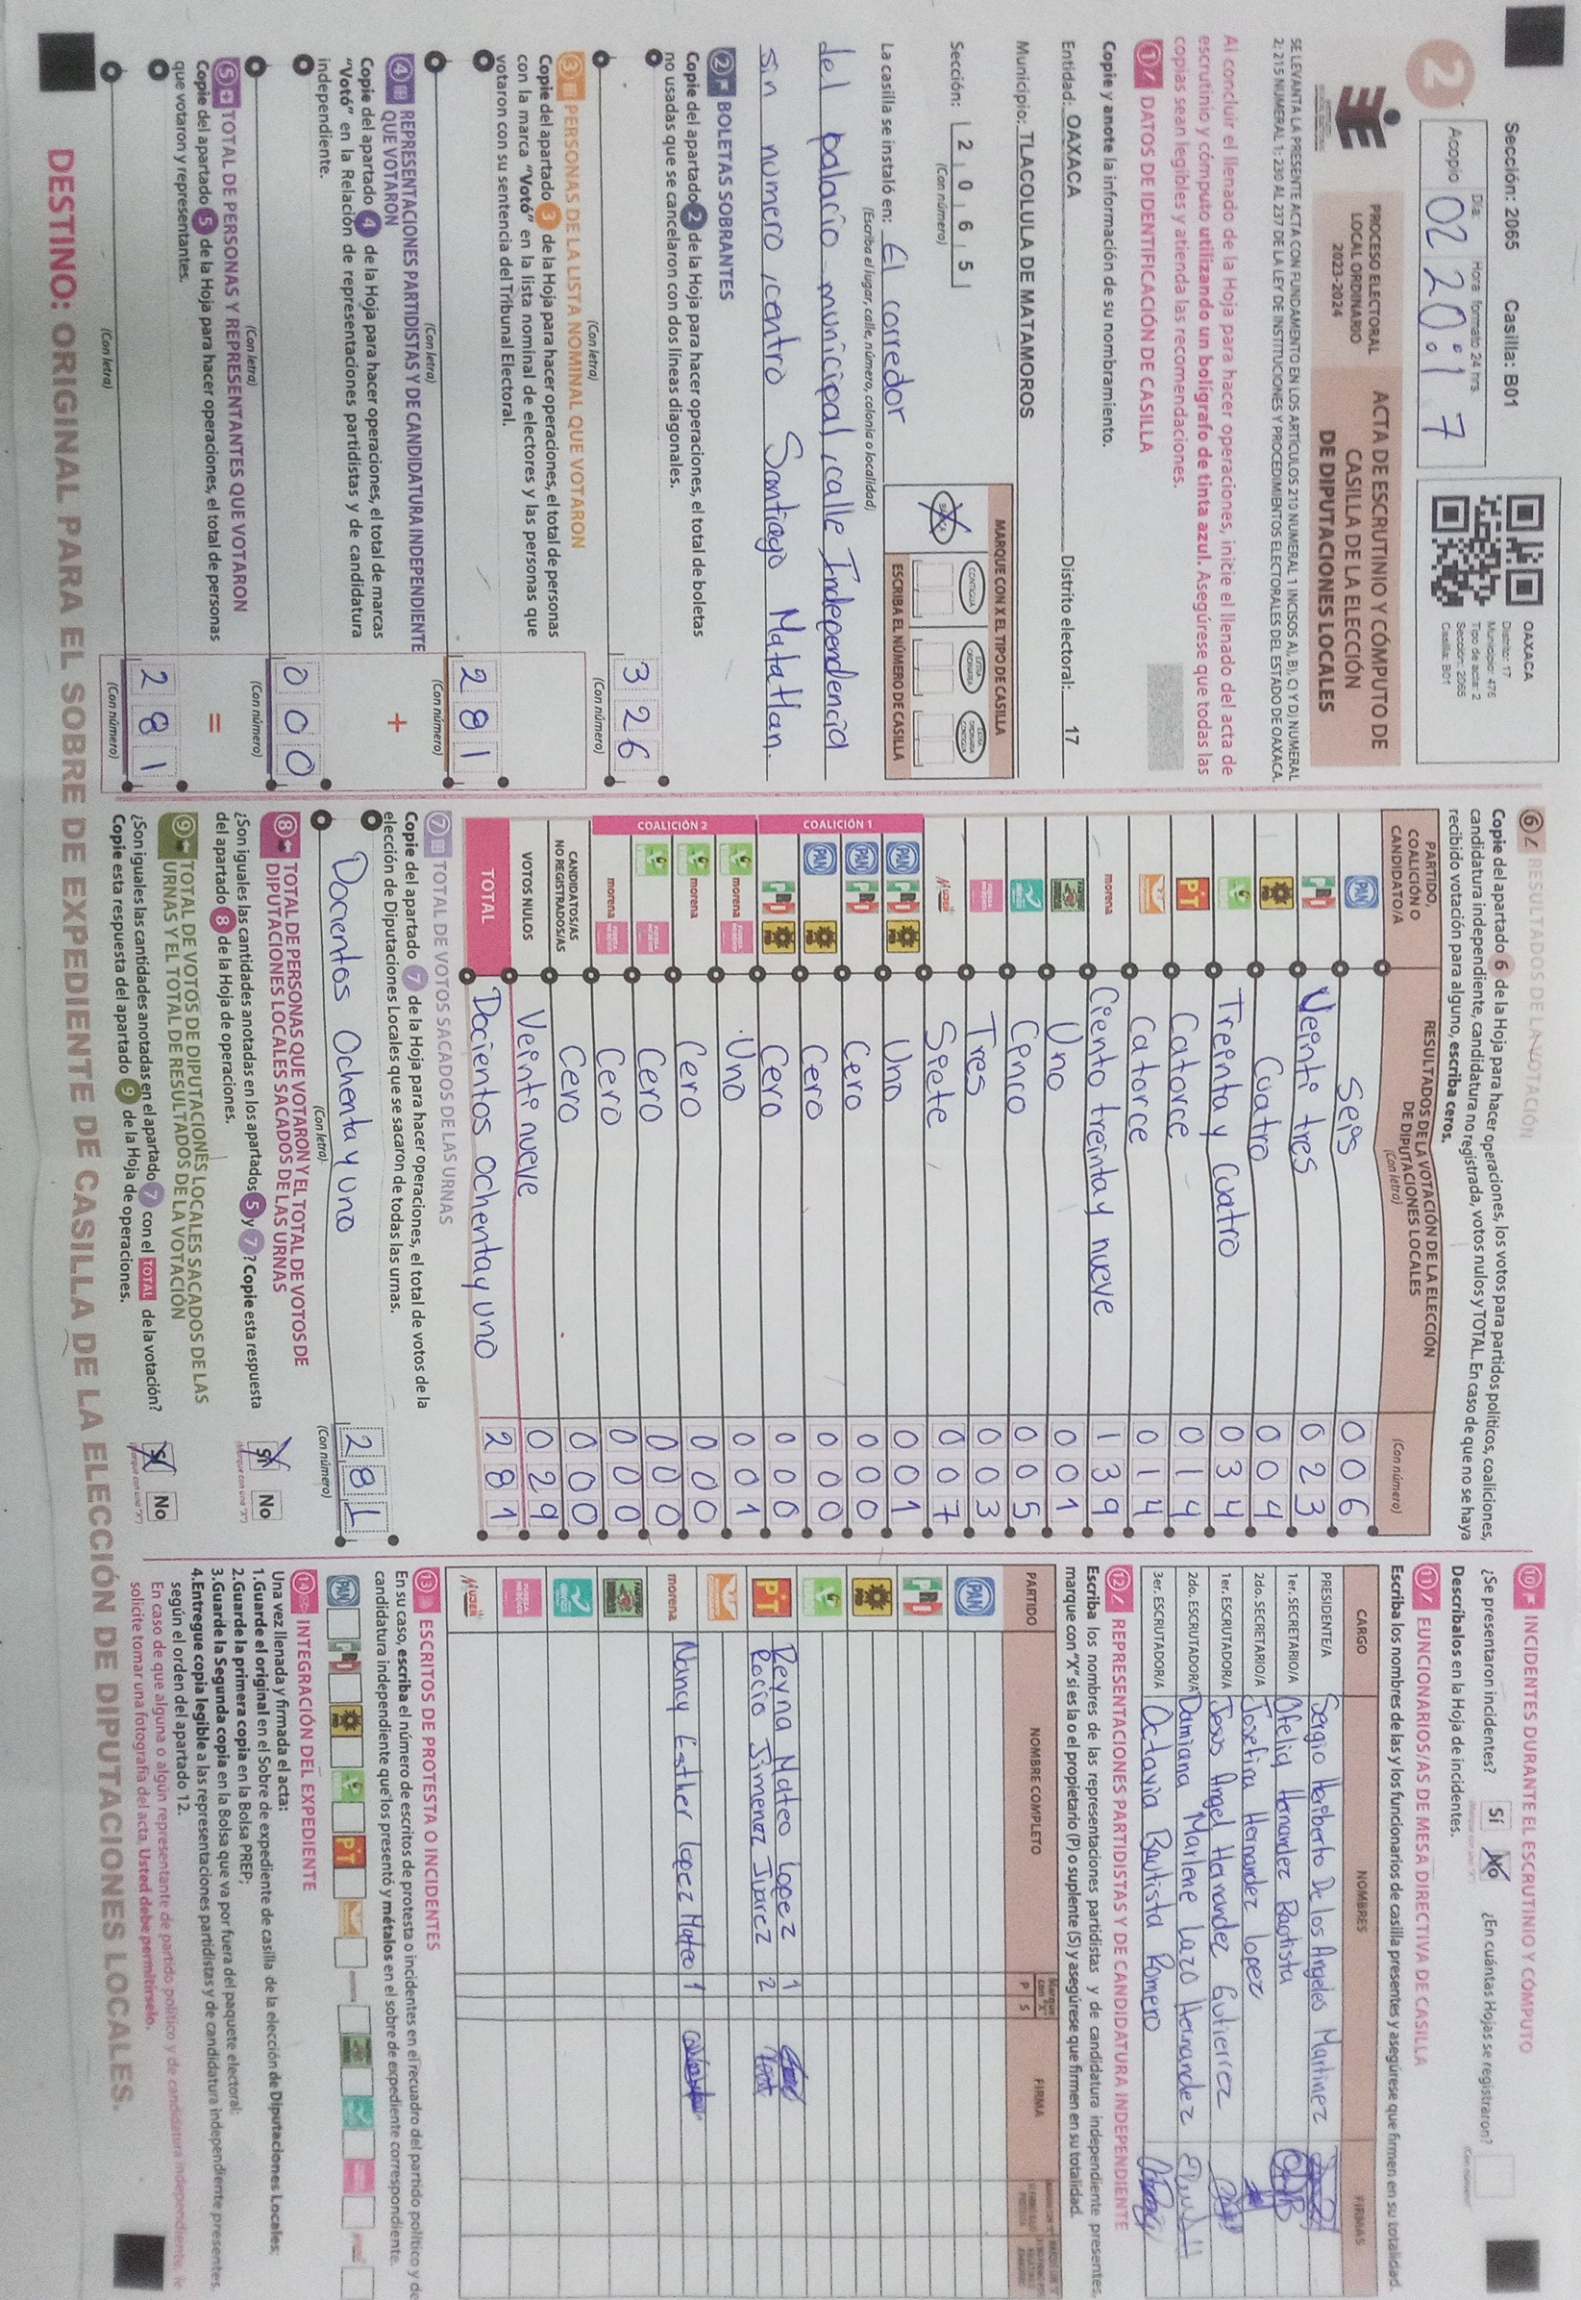 Sección: 2065 Casilla: B01
2
Día: Hora: formato 24 hrs.
Acopio 02 20:17
OAXACA
Distrito: 17
Municipio: 476
Tipo de acta: 2
Sección: 2065
Casilla: B01
PROCESO ELECTORAL
LOCAL ORDINARIO
2023-2024
ACTA DE ESCRUTINIO Y CÓMPUTO DE
CASILLA DE LA ELECCIÓN
DE DIPUTACIONES LOCALES
SE LEVANTA LA PRESENTE ACTA CON FUNDAMENTO EN LOS ARTÍCULOS 210 NUMERAL 1 INCISOS A), B), C) Y D) NUMERAL
2; 215 NUMERAL 1; 230 AL 237 DE LA LEY DE INSTITUCIONES Y PROCEDIMIENTOS ELECTORALES DEL ESTADO DE OAXACA.
Al concluir el llenado de la Hoja para hacer operaciones, inicie el llenado del acta de
escrutinio y cómputo utilizando un bolígrafo de tinta azul. Asegúrese que todas las
copias sean legibles y atienda las recomendaciones.
1 DATOS DE IDENTIFICACIÓN DE CASILLA
Copie y anote la información de su nombramiento.
Entidad: OAXACA Distrito electoral: 17
Municipio: TLACOLULA DE MATAMOROS
Sección: 2 0 6 5
(Con número)
MARQUE CON X EL TIPO DE CASILLA
BÁSICA CONTIGUA EXTRAORDINARIA EXTRAORDINARIA CONTIGUA
ESCRIBA EL NÚMERO DE CASILLA
La casilla se instaló en: El corredor
(Escriba el lugar, calle, número, colonia o localidad)
del palacio municipal, calle Independencia
sin numero, centro Santiago Matatlan.
2 BOLETAS SOBRANTES
Copie del apartado 2 de la Hoja para hacer operaciones, el total de boletas
no usadas que se cancelaron con dos líneas diagonales.
326
(Con letra) (Con número)
3 PERSONAS DE LA LISTA NOMINAL QUE VOTARON
Copie del apartado 3 de la Hoja para hacer operaciones, el total de personas
con la marca "Votó" en la lista nominal de electores y las personas que
votaron con su sentencia del Tribunal Electoral.
281
(Con letra) (Con número)
4 REPRESENTACIONES PARTIDISTAS Y DE CANDIDATURA INDEPENDIENTE
QUE VOTARON
+
Copie del apartado 4 de la Hoja para hacer operaciones, el total de marcas
"Votó" en la Relación de representaciones partidistas y de candidatura
independiente.
000
(Con letra) (Con número)
5 TOTAL DE PERSONAS Y REPRESENTANTES QUE VOTARON
=
Copie del apartado 5 de la Hoja para hacer operaciones, el total de personas
que votaron y representantes.
281
(Con letra) (Con número)
6 RESULTADOS DE LA VOTACIÓN
Copie del apartado 6 de la Hoja para hacer operaciones, los votos para partidos políticos, coaliciones,
candidatura independiente, candidatura no registrada, votos nulos y TOTAL. En caso de que no se haya
recibido votación para alguno, escriba ceros.
PARTIDO,
COALICIÓN O
CANDIDATO/A
RESULTADOS DE LA VOTACIÓN DE LA ELECCIÓN
DE DIPUTACIONES LOCALES
(Con letra) (Con número)
PAN Seis 006
PRI Veinti tres 023
PRD Cuatro 004
Treinta y cuatro 034
PT Catorce 014
Catorce 014
morena Ciento treinta y nueve 139
Uno 001
Cinco 005
Tres 003
MUJER Siete 007
COALICIÓN 1
PAN PRI PRD Uno 001
PAN PRI Cero 000
PAN PRD Cero 000
PRI PRD Cero 000
COALICIÓN 2
morena Uno 001
morena Cero 000
Cero 000
morena Cero 000
CANDIDATOS/AS
NO REGISTRADOS/AS Cero 000
VOTOS NULOS Veinti nueve 029
TOTAL Docientos ochenta y uno 281
7 TOTAL DE VOTOS SACADOS DE LAS URNAS
Copie del apartado 7 de la Hoja para hacer operaciones, el total de votos de la
elección de Diputaciones Locales que se sacaron de todas las urnas.
Docientos Ochenta y uno 281
(Con letra) (Con número)
8 TOTAL DE PERSONAS QUE VOTARON Y EL TOTAL DE VOTOS DE
DIPUTACIONES LOCALES SACADOS DE LAS URNAS
¿Son iguales las cantidades anotadas en los apartados 5 y 7? Copie esta respuesta
del apartado 8 de la Hoja de operaciones.
Sí No
9 TOTAL DE VOTOS DE DIPUTACIONES LOCALES SACADOS DE LAS
URNAS Y EL TOTAL DE RESULTADOS DE LA VOTACIÓN
¿Son iguales las cantidades anotadas en el apartado 7 con el TOTAL de la votación?
Copie esta respuesta del apartado 9 de la Hoja de operaciones.
Sí No
10 INCIDENTES DURANTE EL ESCRUTINIO Y CÓMPUTO
¿Se presentaron incidentes? Sí No ¿En cuántas Hojas se registraron?
Descríbalos en la Hoja de incidentes.
11 FUNCIONARIOS/AS DE MESA DIRECTIVA DE CASILLA
Escriba los nombres de las y los funcionarios de casilla presentes y asegúrese que firmen en su totalidad.
CARGO NOMBRES FIRMAS
PRESIDENTE/A Sergio Heriberto De los Angeles Martinez
1er. SECRETARIO/A Ofelia Hernandez Bautista
2do. SECRETARIO/A Josefina Hernandez Lopez
1er. ESCRUTADOR/A Jesus Angel Hernandez Gutierrez
2do. ESCRUTADOR/A Damiana Marlene Lazo Hernandez
3er. ESCRUTADOR/A Octavia Bautista Romero
12 REPRESENTACIONES PARTIDISTAS Y DE CANDIDATURA INDEPENDIENTE
Escriba los nombres de las representaciones partidistas y de candidatura independiente presentes,
marque con "X" si es la o el propietario (P) o suplente (S) y asegúrese que firmen en su totalidad.
PARTIDO NOMBRE COMPLETO Marque con "X" P S FIRMA
PAN
PRI
PRD
PT Reyna Mateo Lopez 1
Rocio Jimenez Juarez 2
morena Nancy Esther Lopez Mateo 1
MUJER
13 ESCRITOS DE PROTESTA O INCIDENTES
En su caso, escriba el número de escritos de protesta o incidentes en el recuadro del partido político y de
candidatura independiente que los presentó y métalos en el sobre de expediente correspondiente.
PAN PRI PRD PT
14 INTEGRACIÓN DEL EXPEDIENTE
Una vez llenada y firmada el acta:
1.Guarde el original en el Sobre de expediente de casilla de la elección de Diputaciones Locales;
2.Guarde la primera copia en la Bolsa PREP;
3.Guarde la Segunda copia en la Bolsa que va por fuera del paquete electoral;
4.Entregue copia legible a las representaciones partidistas y de candidatura independiente presentes,
según el orden del apartado 12.
En caso de que alguna o algún representante de partido político y de candidatura independiente, le
solicite tomar una fotografía del acta, Usted debe permitírselo.
DESTINO: ORIGINAL PARA EL SOBRE DE EXPEDIENTE DE CASILLA DE LA ELECCIÓN DE DIPUTACIONES LOCALES.